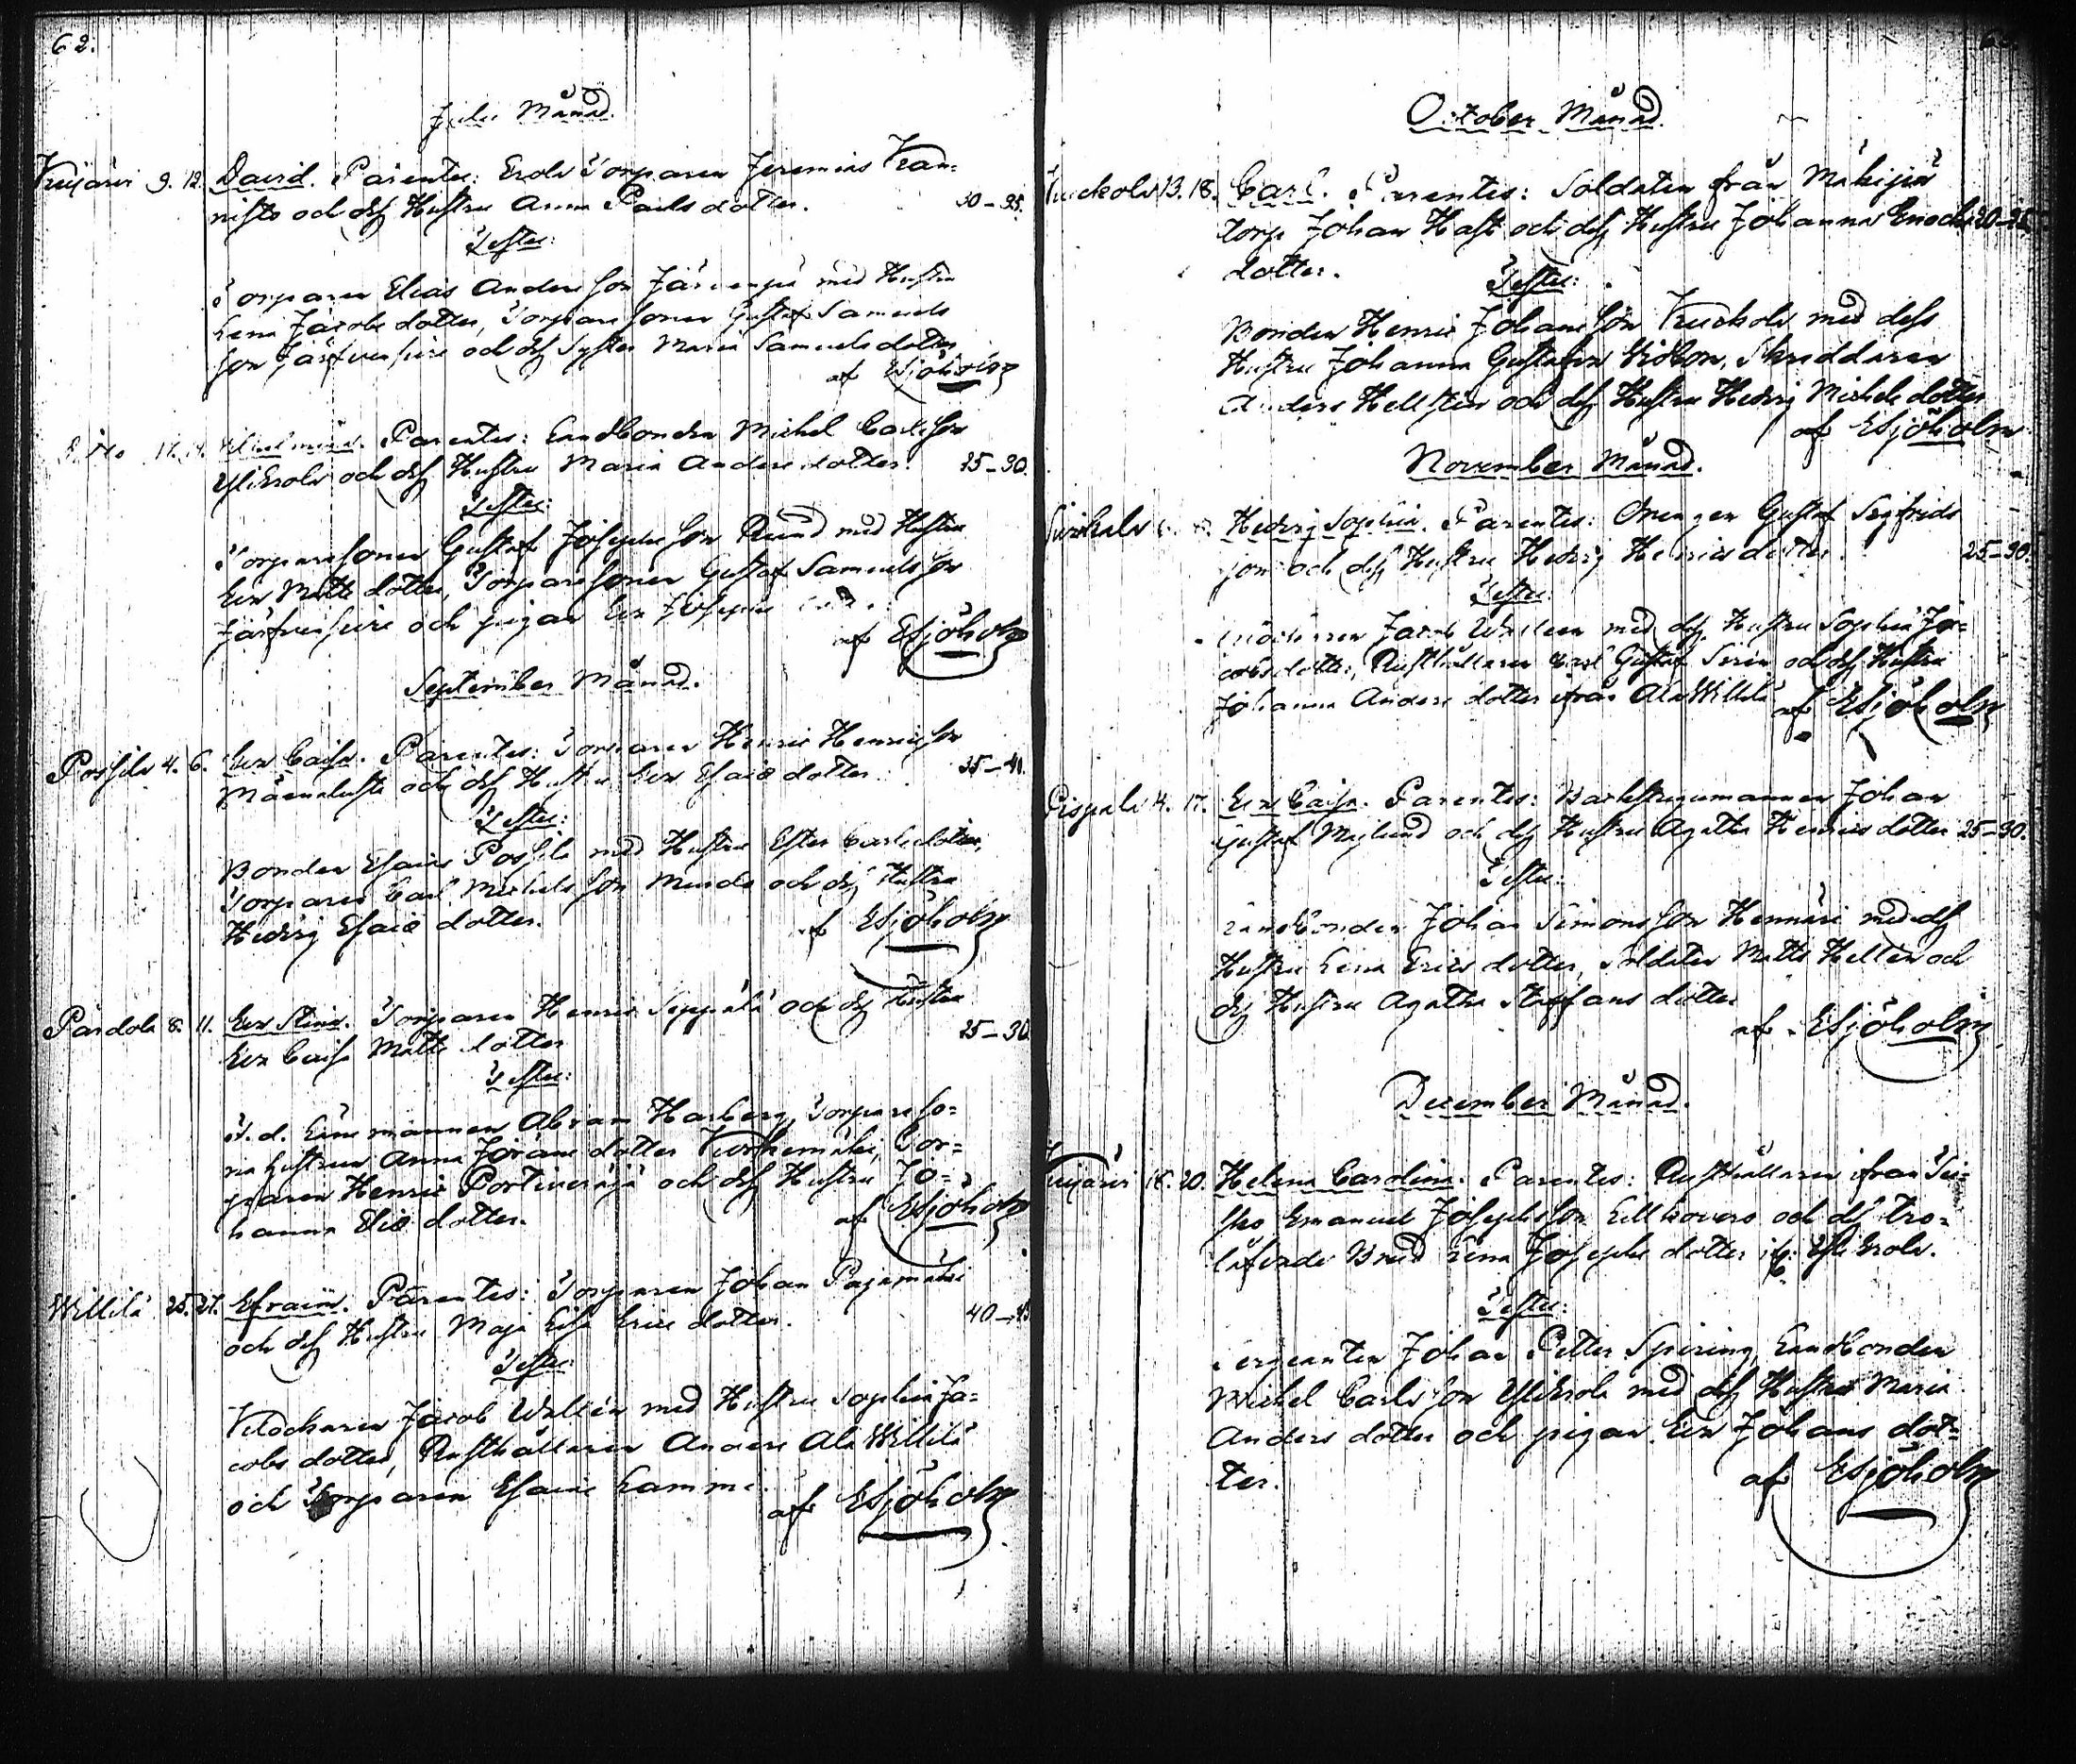 62.
Julii Månad.
Krujärvi 9. 12. David. Parentes: Erola Torparen Jeremias Kran-
nisto och dess Hustru Anna Pauls dotter. 30-35.
Testes:
Torparen Elias Andersson Järvenpä med Hustru
Lena Jacobs dotter, Torpare sonen Gustaf Samuels
son Järfvensivu och dess Syster Maria Samuels dotter
af ESjöholm
Parentes: Landbonden Michel Carlsson
Yli Erola och dess Hustru Maria Anders dotter. 25-30.
Testes:
Torparesonen Gustaf Josephsson Rund med Hustru
Eva Matts dotter, Torparesonen Gustaf Samuelsson
Järfvensivu och pigan Eva Josephs
af ESjöholm
September Månad.
Possila 4. 6. Eva Caisa. Parentes: Torparen Henric Henricsson
och dess Hustru Eva Esaiæ dotter. 35-40.
Testes:
Bonden Esaias Possila med Hustru Ester Carls dotter,
Torparen Carl Michelsson och dess Hustru
Hedvig Esaiæ dotter.
af ESjöholm
Pardola 8. 11. Eva Stina. Torparen Henric Seppälä och dess Hustru
Eva Caisa Matts dotter 25-30.
Testes:
V. d. Länsmannen Abram Harberg, Torpareso-
na hustrun Anna Jörans dotter Kurkemäki, Tor-
paren Henric Portinraja och dess Hustru Jo-
hanna Eliæ dotter.
af ESjöholm
Willilä 25. 27. Efraim. Parentes: Torparen Johan Pajamäki
och dess Hustru Maja Lisa Erics dotter. 40-45
Testes:
Klockaren Jacob Wallén med Hustru Sophia Ja-
cobs dotter, Rusthållaren Anders Ala Willilä
och Torparen Esaias Lammi.
af ESjöholm
October Månad.
13. 18. Carl. Parentes: Soldaten från Mäkipä
torp Johan Hast och dess Hustru Johanna Enochs 20-25
dotter.
Testes:
Bonden Henric Johansson Kuckola med dess
Hustru Johanna Gustafva Widbom, Skräddaren
Anders Hellsten och dess Hustru Hedvig Michels dotter
af ESjöholm
November Månad.
Hedvig Sophia. Parentes: Drengen Gustaf Sigfrids
son och dess Hustru Hedvig Henrics dotter. 25-30.
Testes:
Klockaren Jacob Wallén med dess Hustru Sophia Ja-
cobs dotter, Rusthållaren Carl Gustaf och dess Hustru
Johanna Anders dotter ifrån Ala Willilä
af ESjöholm
Pispala 14. 17. Eva Caisa. Parentes: Johan
Gustaf Majlund och dess Hustru Agatha Henrics dotter 25-30.
Testes:
Landbonden Johan Simonsson Hennäri med dess
Hustru Lena Erics dotter, Soldaten Matts Hellén och
dess Hustru Agatha Staffans dotter
af ESjöholm
December Månad.
Krujärvi 18. 20. Helena Carolina. Parentes: Rusthållaren ifrån
Emanuel Josephsson och dess tro-
låfvade Brud Lena Josephs dotter Yli Erola.
Testes:
Sergeanten Johan Petter Spiring, Landbonden
Michel Carlsson Yli Erola med dess Hustru Maria
Anders dotter och pigan Eva Johans dot-
ter.
af ESjöholm